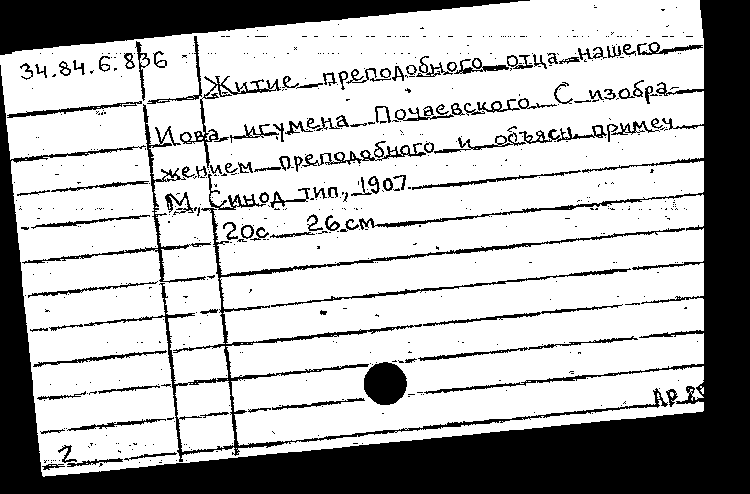 34.84.6.836
Житие преподобного отца нашего
Иова, игумена Почаевского. С изобра-
жением преподобного и объясн. примеч
М, Синод тип, 1907
20с 26 см
Ар 89
2